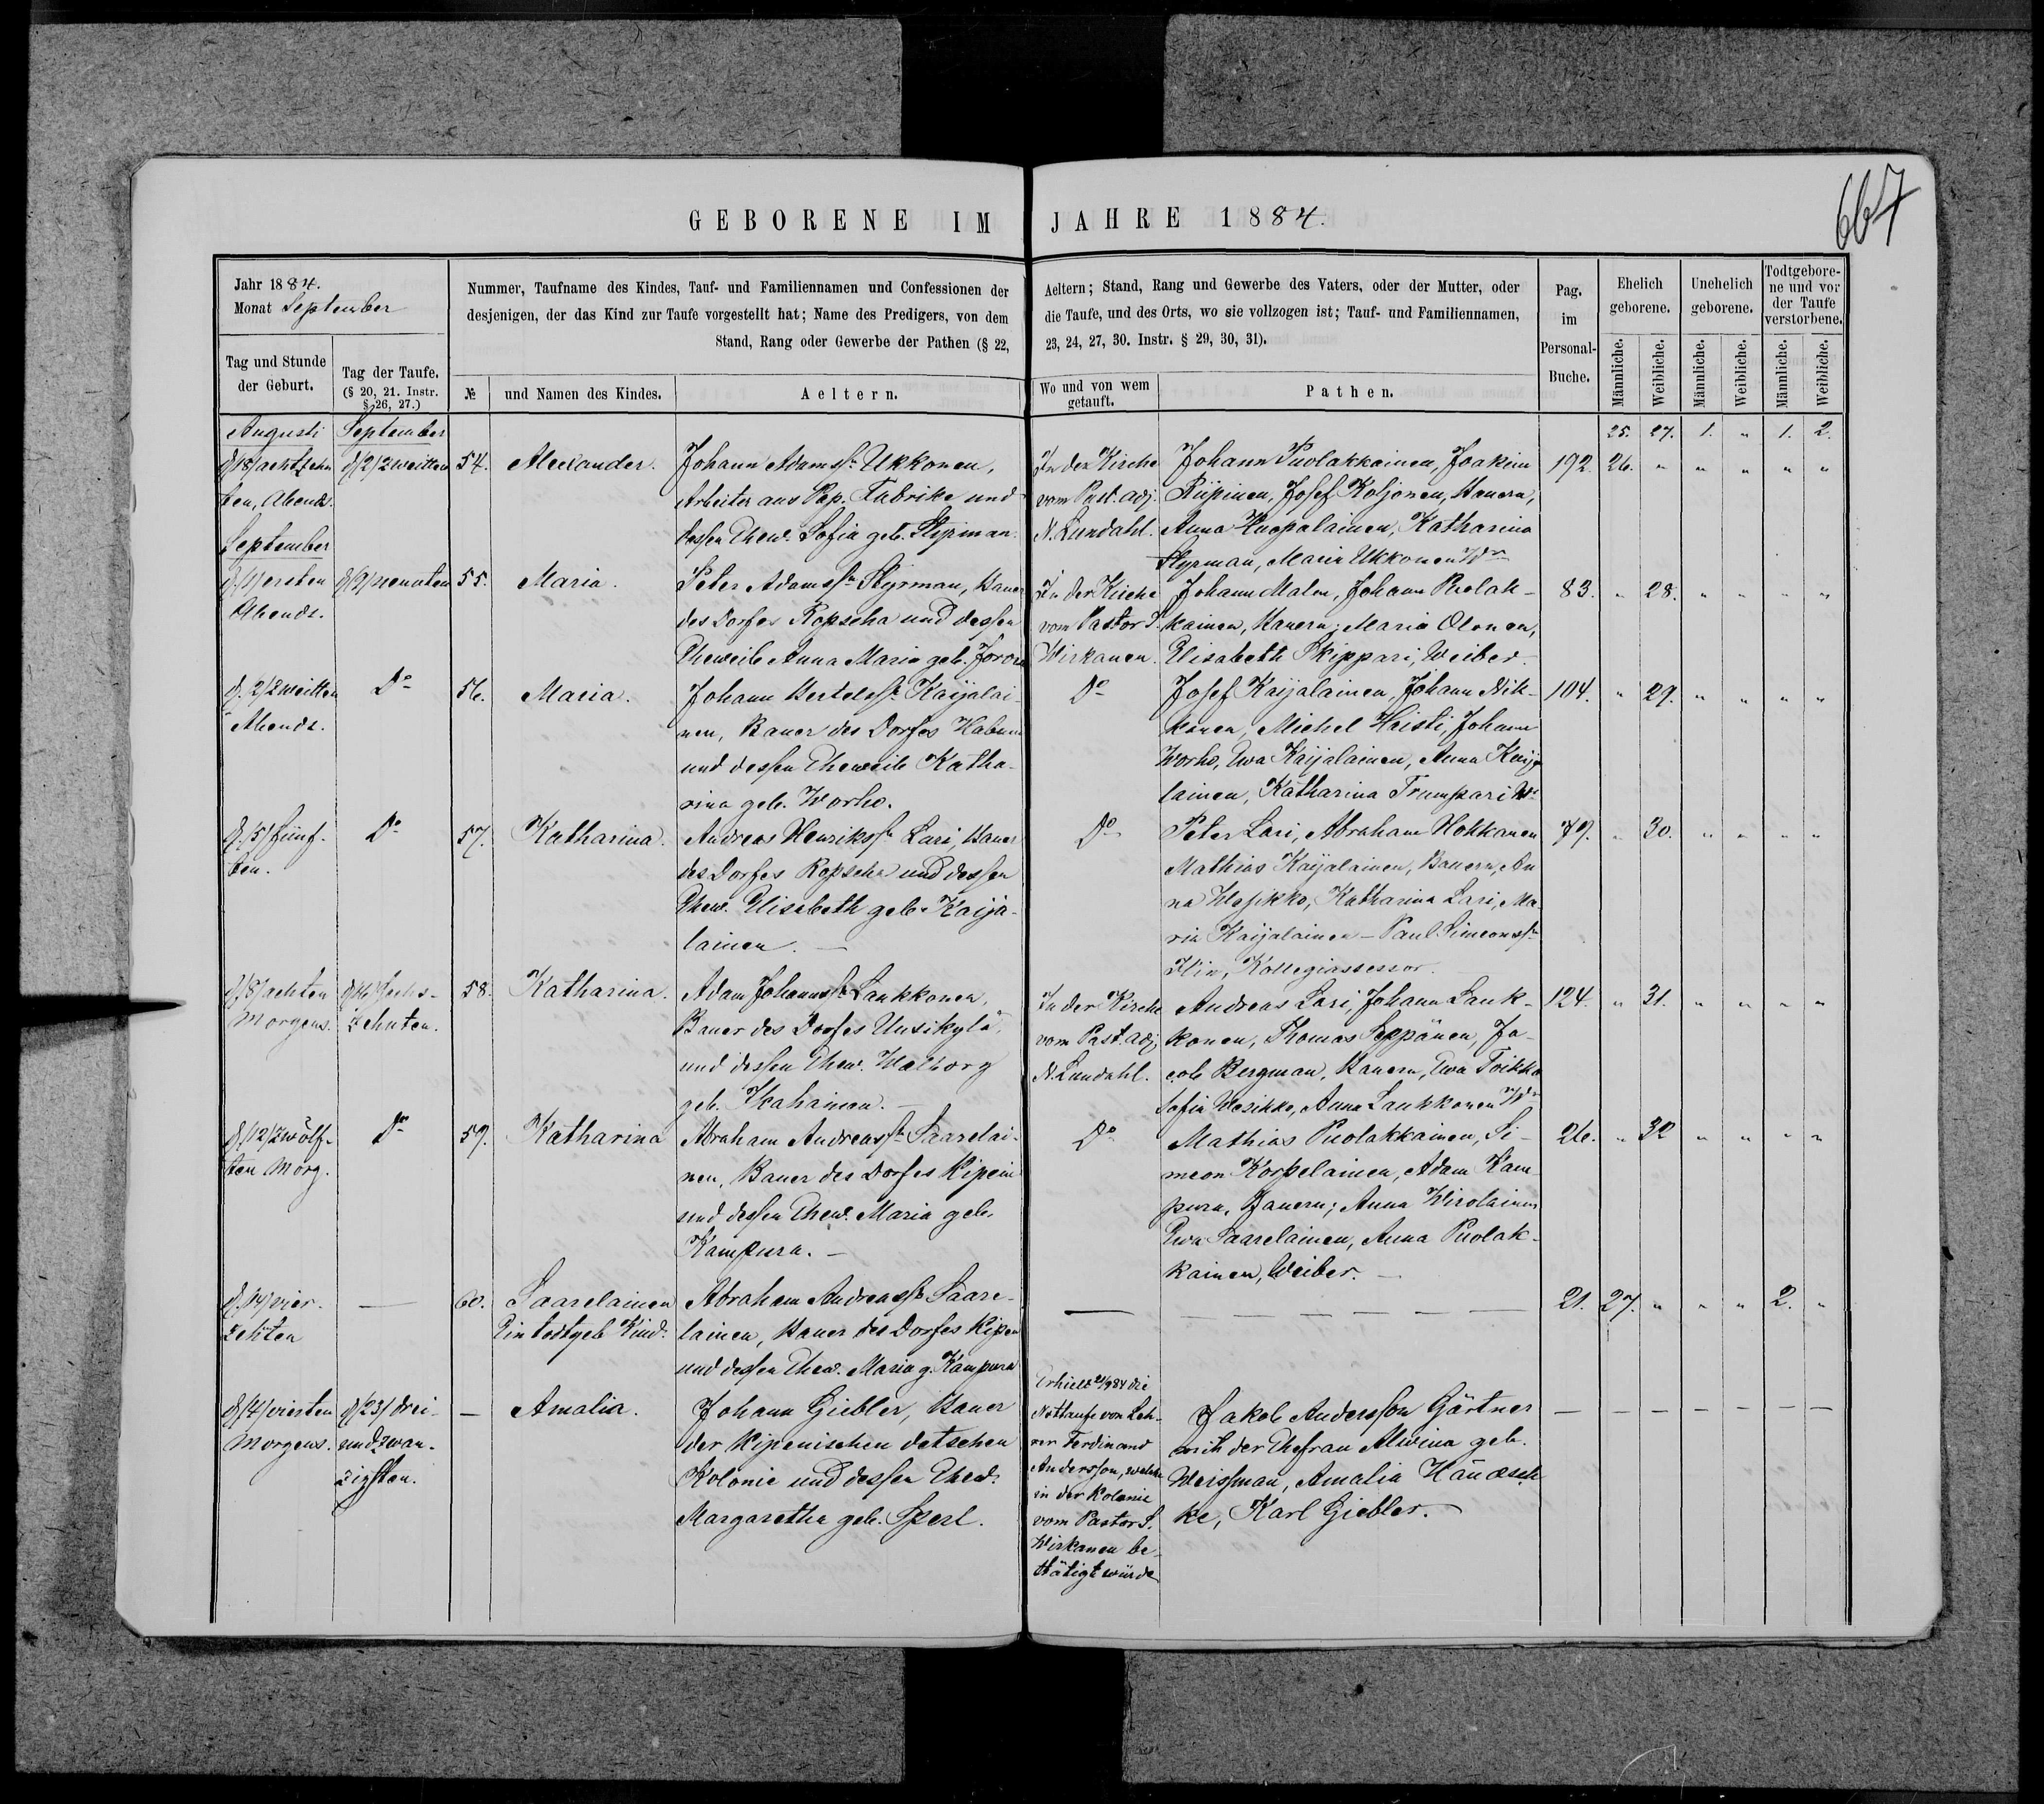 667
GEBORENE IM JAHRE 1884.
Jahr 1884.
Monat September
Nummer, Taufname des Kindes, Tauf- und Familiennamen und Confessionen der
desjenigen, der das Kind zur Taufe vorgestellt hat; Name des Predigers, von dem
Stand, Rang oder Gewerbe der Pathen (§ 22,
Aeltern; Stand, Rang und Gewerbe des Vaters, oder der Mutter, oder
die Taufe, und des Orts, wo sie vollzogen ist; Tauf- und Familiennamen,
23, 24, 27, 30. Instr. § 29, 30, 31).
Pag.
im
Personal-
Buche.
Ehelich
geborene.
Unehelich
geborene.
Todtgebore-
ne und vor
der Taufe
verstorbene.
Tag und Stunde
der Geburt.
Tag der Taufe.
(§ 20, 21. Instr.
§ 26, 27.)
№
und Namen des Kindes.
Aeltern.
Wo und von wem
getauft.
Pathen.
Männliche.
Weibliche.
Männliche.
Weibliche.
Männliche.
Weibliche.
25. 27. 1. " 1. 2.
Augusti
d/18/achtzehn
ten, Abends.
September
d/2/zweiten
54.
Alexander.
Johann Adamss. Ukkonen,
Arbeiter aus Pap. Fabrike und
dessen Ehew. Sofia geb. Styrman.
In der Kirche
vom Past. adj.
N. Lundahl.
Johann Puolakkainen, Joakim
Riipinen, Josef Koljonen, Bauern,
Anna Huopalainen, Katharina
Styrman, Maria Ukkonen Wr
192. 26. " " " " "
September
d/1/ersten
Abends.
d/9/neunten
55.
Maria.
Peter Adamss. Styrman, Bauer
des Dorfes Ropscha und dessen
Eheweib Anna Maria geb.
In der Kirche
vom Pastor S.
Wirkanen.
Johann Malm, Johann Puolak-
kainen, Bauern; Maria Olonen,
Elisabeth Skippari, Weiber.
83. " 28. " " " "
d. /2/zweiten
Abends.
Do
56.
Maria.
Johann Bertelss. Kaijalai-
nen, Bauer des Dorfes
und dessen Eheweib Katha-
rina geb. Worho.
Do
Josef Kaijalainen, Johann Nik-
konen, Michel Heisti, Johann
Worho, Ewa Kaijalainen, Anna Kaija
lainen, Katharina Trumpari Wr
104. " 29. " " " "
d. /5/fünf-
ten.
Do
57.
Katharina.
Andreas Henrikss. Lari, Bauer
des Dorfes Ropscha und dessen
Ehew. Elisabeth geb. Kaija-
lainen. —
Do
Peter Lari, Abraham Hokkanen
Mathias Kaijalainen, Bauern, An
na Wesikko, Katharina Lari, Ma-
ria Kaijalainen – Paul Simeonss.
Ilin, Kollegiassessor.
79. " 30. " " " "
d/8/achten
Morgens.
d/16/sechs-
zehnten.
58.
Katharina.
Adam Johannss. Laukkonen,
Bauer des Dorfes Uusikylä,
und dessen Ehew. Walborg
geb. —
In der Kirche
vom Past. adj.
N. Lundahl.
Andreas Lari, Johann Lauk-
konen, Thomas Seppänen, Ja-
cob Bergman, Bauern, Ewa Toikka
Sofia Wesikko, Anna Laukkonen Wr
124. " 31. " " " "
d. /12/zwölf-
ten Morg.
Do
59.
Katharina
Abraham Andreass. Saarelai-
nen, Bauer des Dorfes Kipeni
und dessen Ehew. Maria geb.
Kampura. —
Do
Mathias Puolakkainen, Si-
meon Korpelainen, Adam Kam-
pura, Bauern; Anna Wirolainen
Ewa Saarelainen, Anna Puolak-
kainen, Weiber. —
26. " 32 " " " "
d. 14/vier-
zehnten
—
60.
Saarelainen
Ein todtgeb. Kind.
Abraham Andreass. Saare-
lainen, Bauer des Dorfes Kipen
und dessen Ehew. Maria g. Kampura
— — — — —
21. 27. " " " 2. "
d/4/vierten
Morgens.
d/23/drei-
und zwan-
zigsten.
—
Amalia.
Johann Giebler, Bauer
der Kipenischen detschen
Kolonie und dessen Ehew.
Margaretha geb. Sperl.
Erhielt 21/9 84 die
Nottaufe von Leh-
rer Ferdinand
Andersson, welche
in der Kolonie
vom Pastor S.
Wirkanen be-
stätigt würde
Jakob Andersson Gärtner
mit der Ehefrau Alwina geb.
Weissman, Amalia Händsch
ke, Karl Giebler.
— — — — — — —